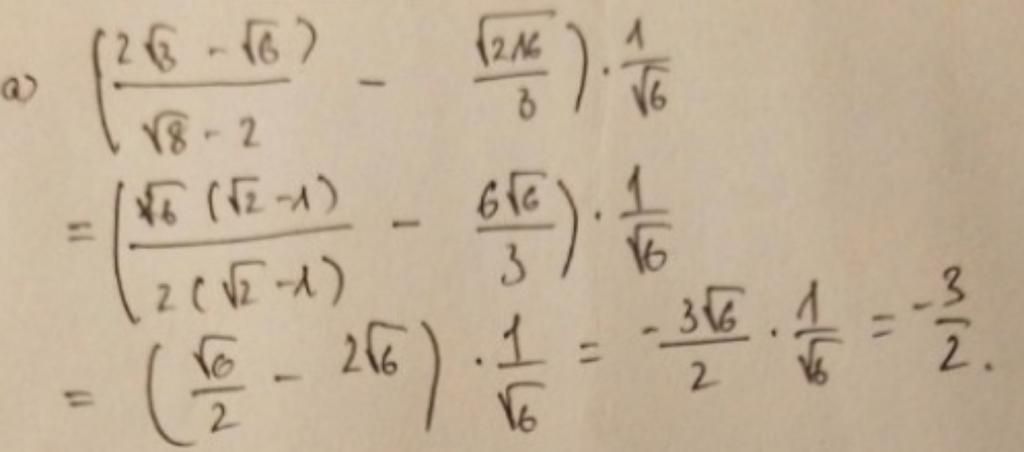 a) ( (2√3 - √6) / (√8 - 2) - √216 / 3 ) · 1/√6
= ( √6 (√2 - 1) / 2(√2 - 1) - 6√6 / 3 ) · 1/√6
= ( √6 / 2 - 2√6 ) · 1/√6 = - 3√6 / 2 · 1/√6 = - 3/2.